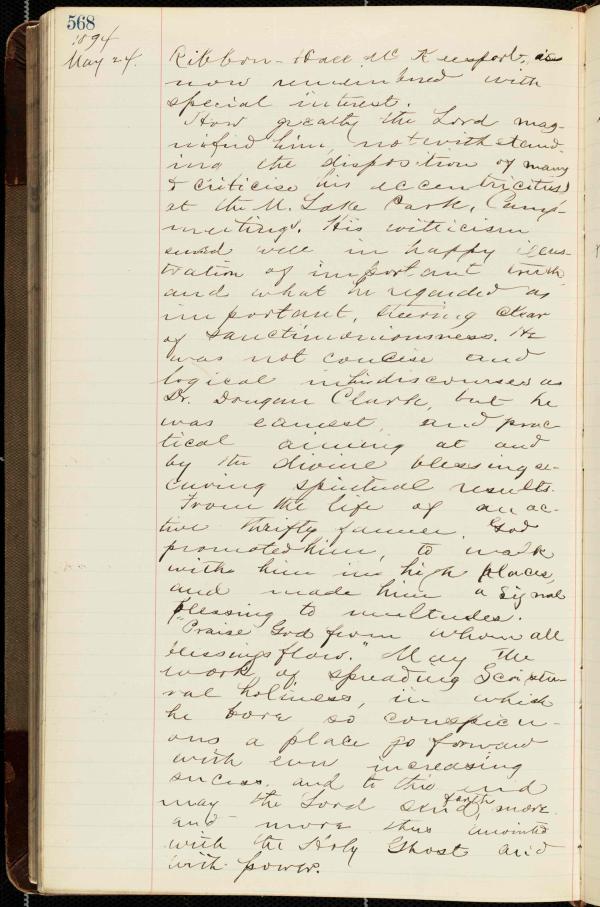 568
1894
May 24.
Ribbon-Hall McKeesport, is
now remembered with
special interest.
How greatly the Lord mag-
nified him, notwithstand-
ing the disposition of many
to criticise his eccentricities
at the M. Lake Park, Camp-
meetings. His witticism
served well in happy illus-
tration of important truth,
and what he regarded as
important, steering clear
of sanctimoniousness. He
was not concise and
logical in his discourses as
Dr. Dougan Clark, but he
was earnest, and prac-
tical aiming at and
by the divine blessing se-
curing spiritual results.
From the life of an ac-
tive thrifty farmer, God
promoted him, to walk
with him in high places,
and made him a signal
blessing to multitudes.
"Praise God from whom all
blessings flow." May the
work of spreading Scriptu-
ral holiness, in which
he bore so conspicu-
ous a place go forward
with even increasing
success. and to this end
may the Lord send forth, more
and more thus anointed
with the Holy Ghost and
with power.